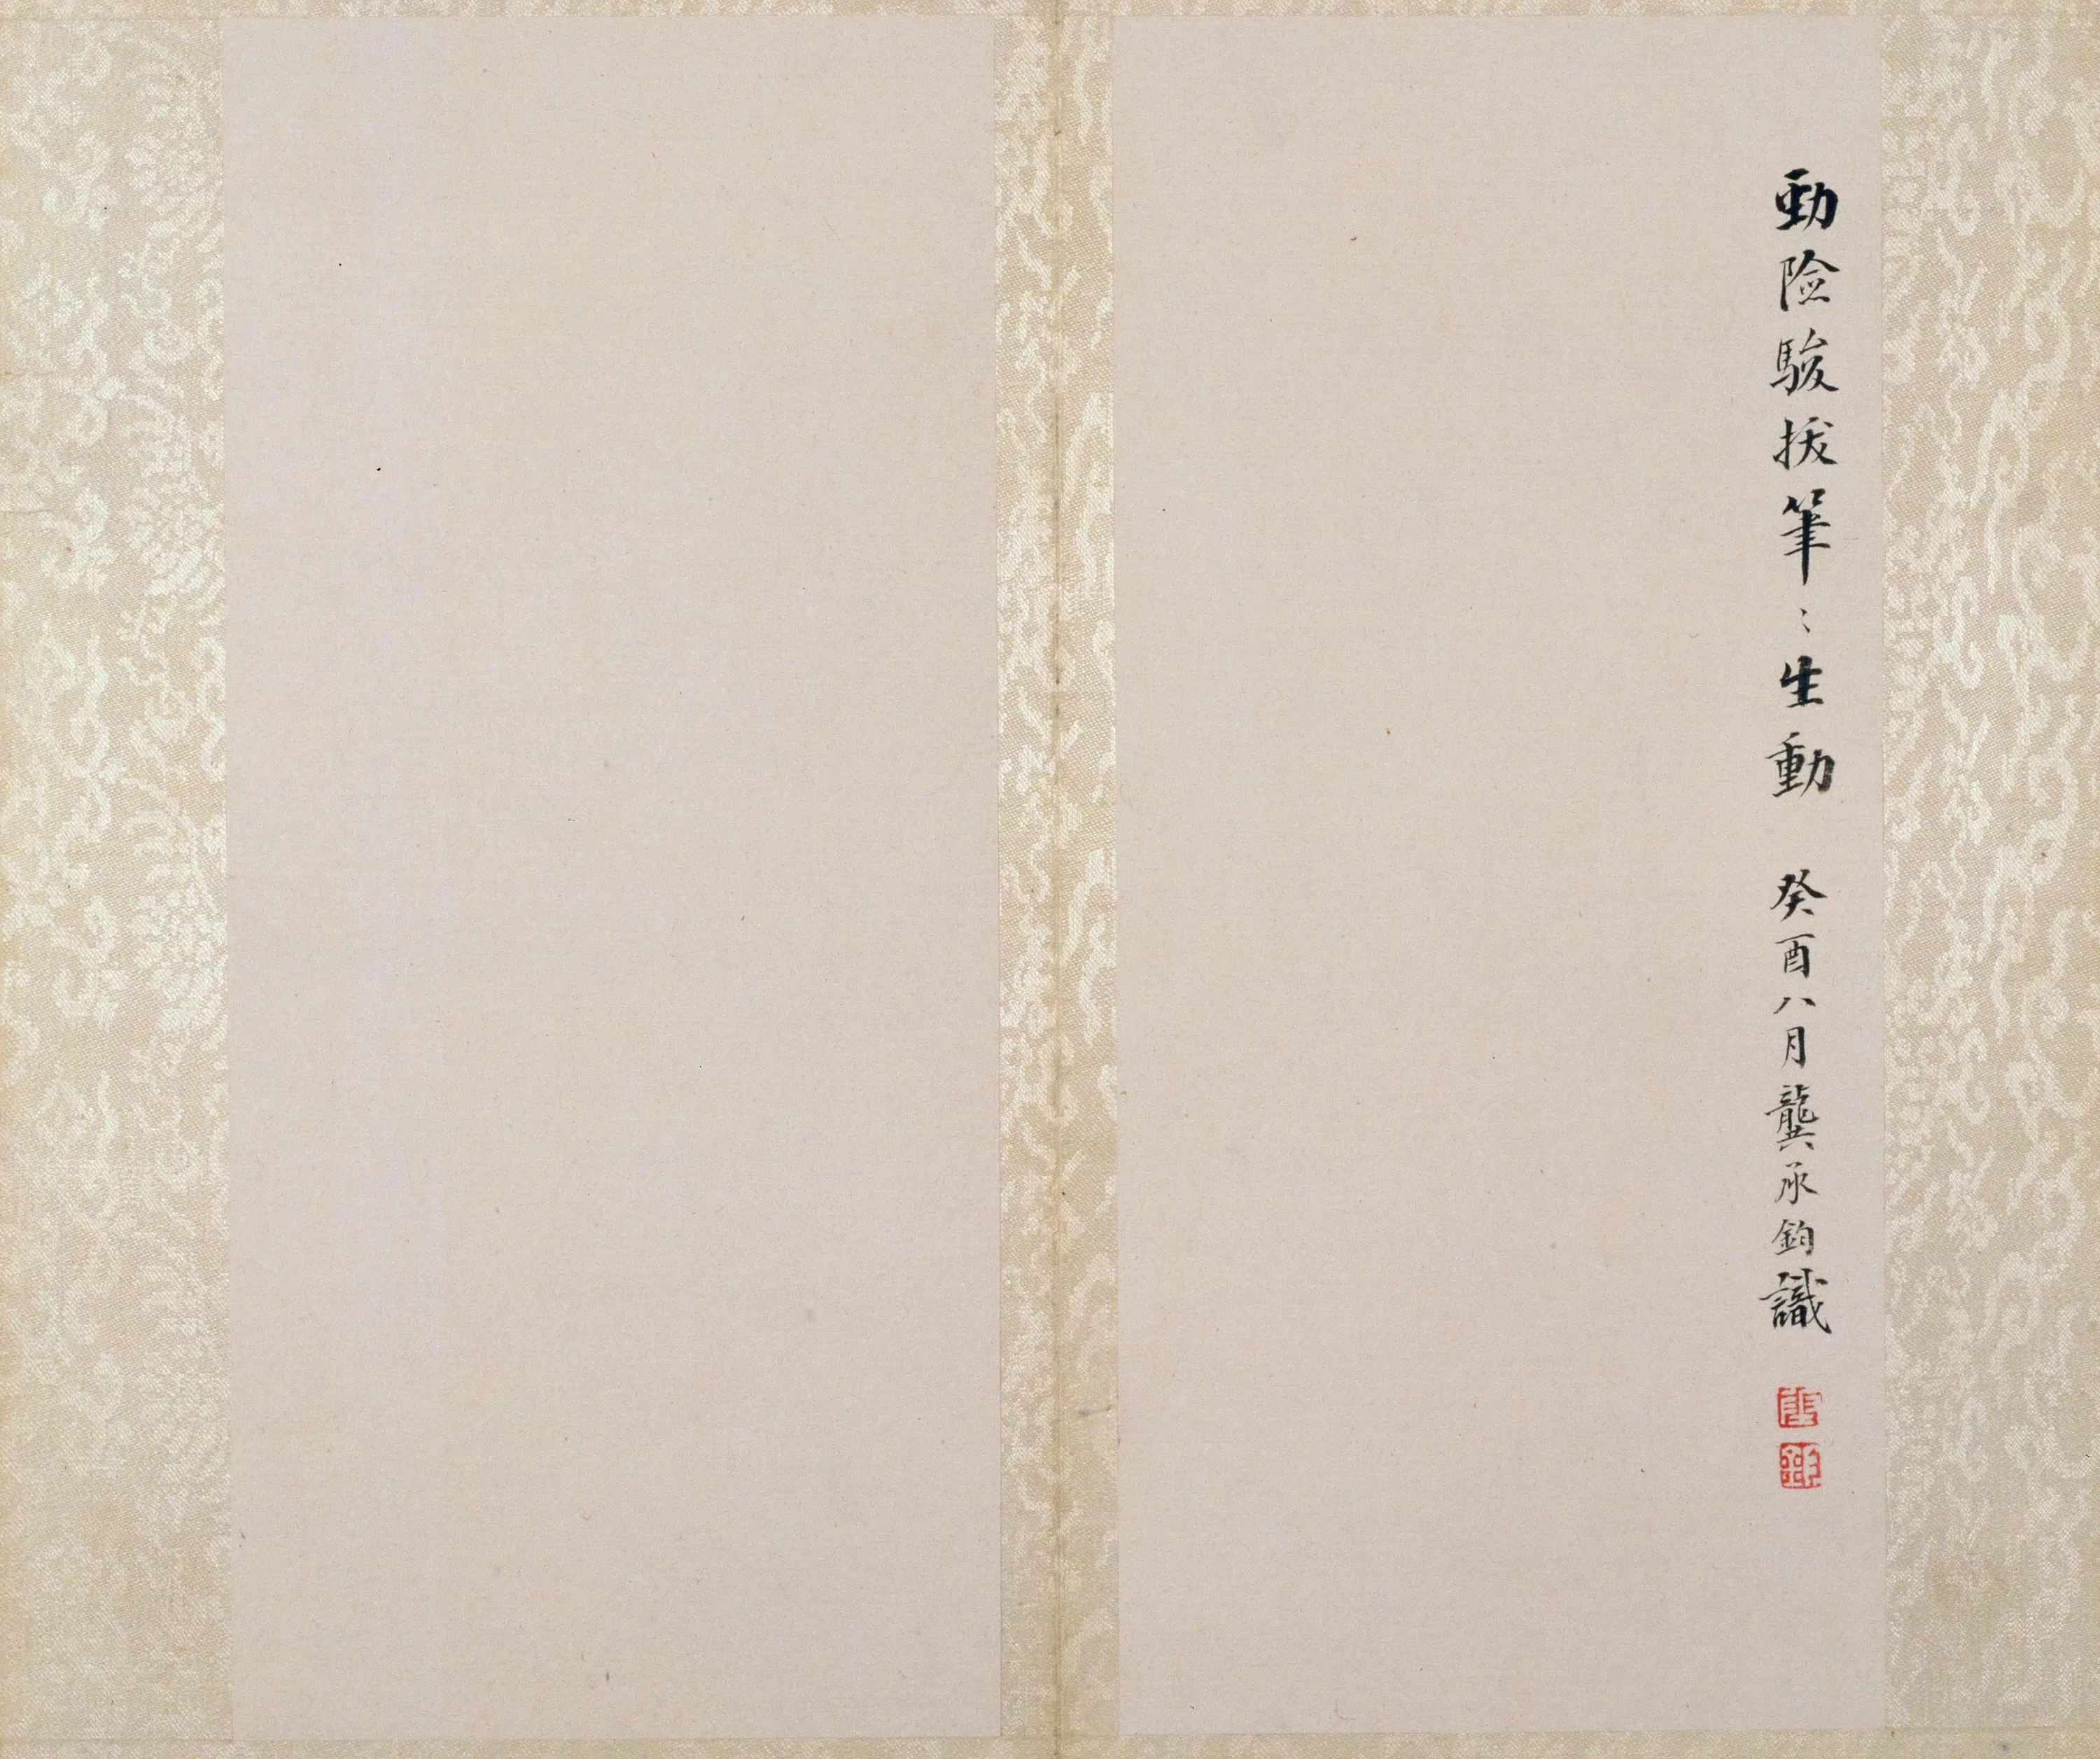 勁險駿拔筆〻生動 癸酉八月龔承鈞識